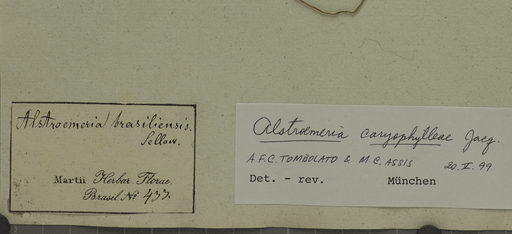 Alstroemeria brasiliensis.
Sellow.
Martii Herbar. Florae
Brasil. No 433.
Alstroemeria caryophylleae Jacq.
A.F.C. TOMBOLATO & M.C. ASSIS
20.V.99
Det. - rev. München